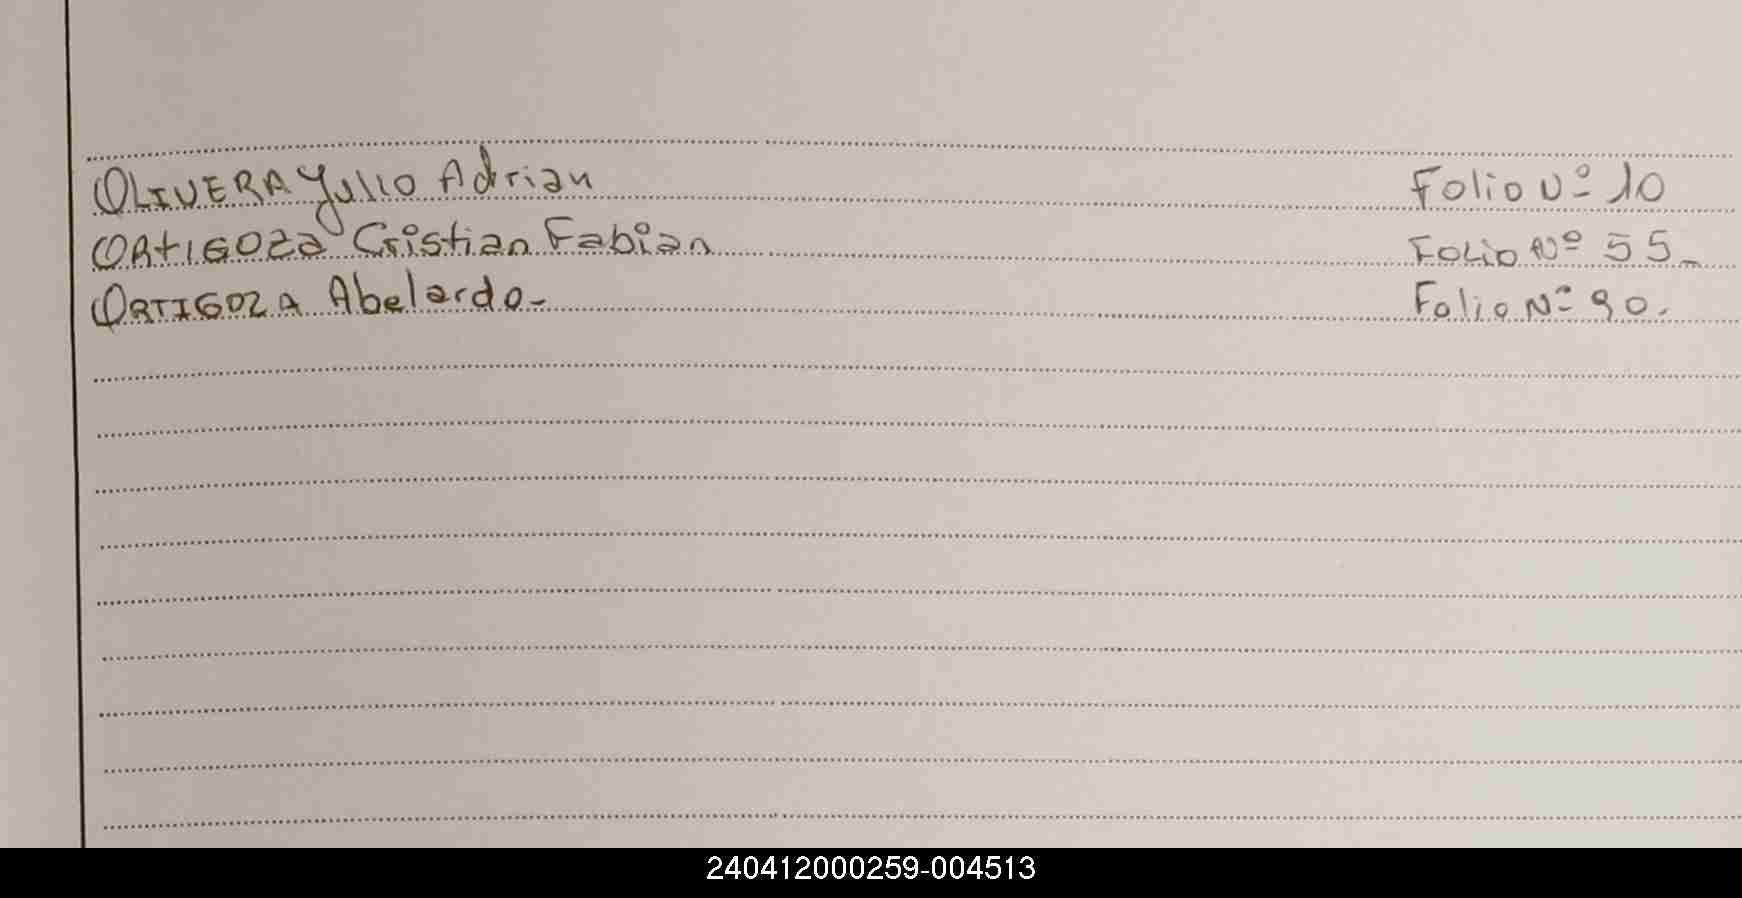 OLIVERA Yulio Adrian Folio Nº 10
ORtIGOza Cristian Fabian Folio Nº 55-
ORTIGOZA Abelardo- Folio Nº 90.
240412000259-004513